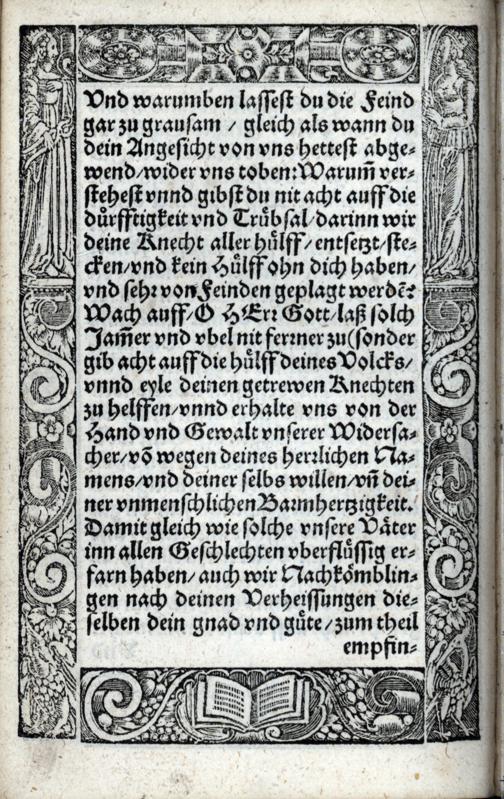 Vnd warumben lassest du die Feind
gar zu grausam / gleich als wann du
dein Angesicht von vns hettest abge-
wend/wider vns toben: Warum̄ ver-
stehest vnnd gibst du nit acht auff die
duͤrfftigkeit vnd Truͤbsal/darinn wir
deine Knecht aller huͤlff/entsetzt/ste-
cken/vnd kein Huͤlff ohn dich haben/
vnd sehr von Feinden geplagt werdē?
Wach auff/O HErr Gott/laß solch
Jam̄er vnd vbel nit ferrner zu(sonder
gib acht auff die huͤlff deines Volcks/
vnnd eyle deinen getrewen Knechten
zu helffen/vnnd erhalte vns von der
Hand vnd Gewalt vnserer Widersa-
cher/vō wegen deines herrlichen Na-
mens/vnd deiner selbs willen/vn̄ dei-
ner vnmenschlichen Barmhertzigkeit.
Damit gleich wie solche vnsere Vaͤter
inn allen Geschlechten vberfluͤssig er-
farn haben/auch wir Nachkoͤmblin-
gen nach deinen Verheissungen die-
selben dein gnad vnd guͤte/zum theil
empfin-